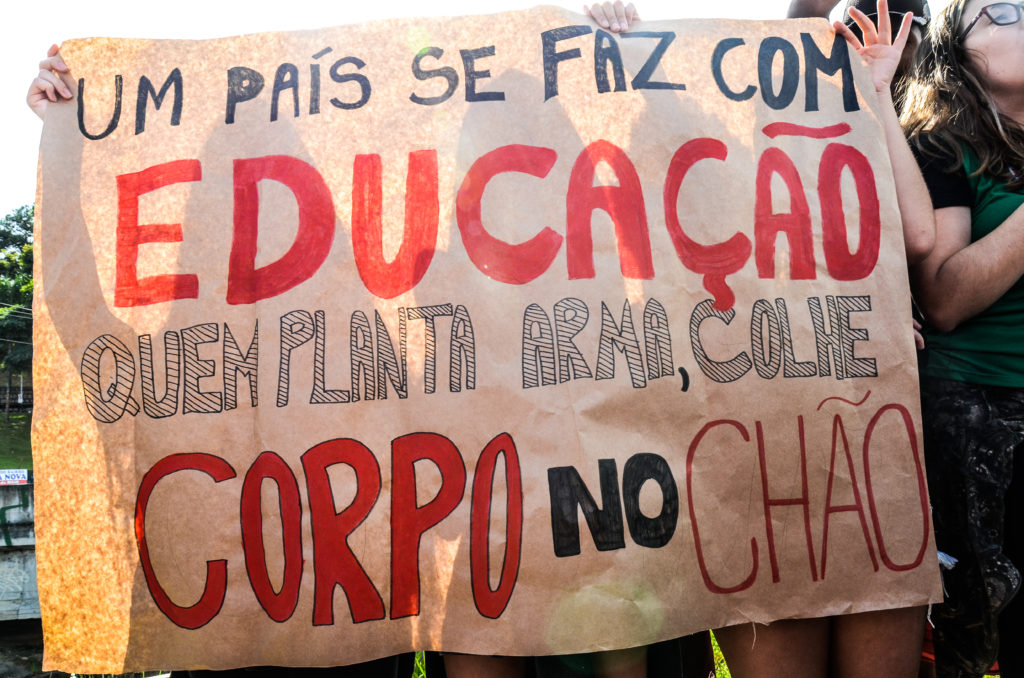 UM PAÍS SE FAZ COM
EDUCAÇÃO
QUEM PLANTA ARMA, COLHE
CORPO NO CHÃO
NOVA